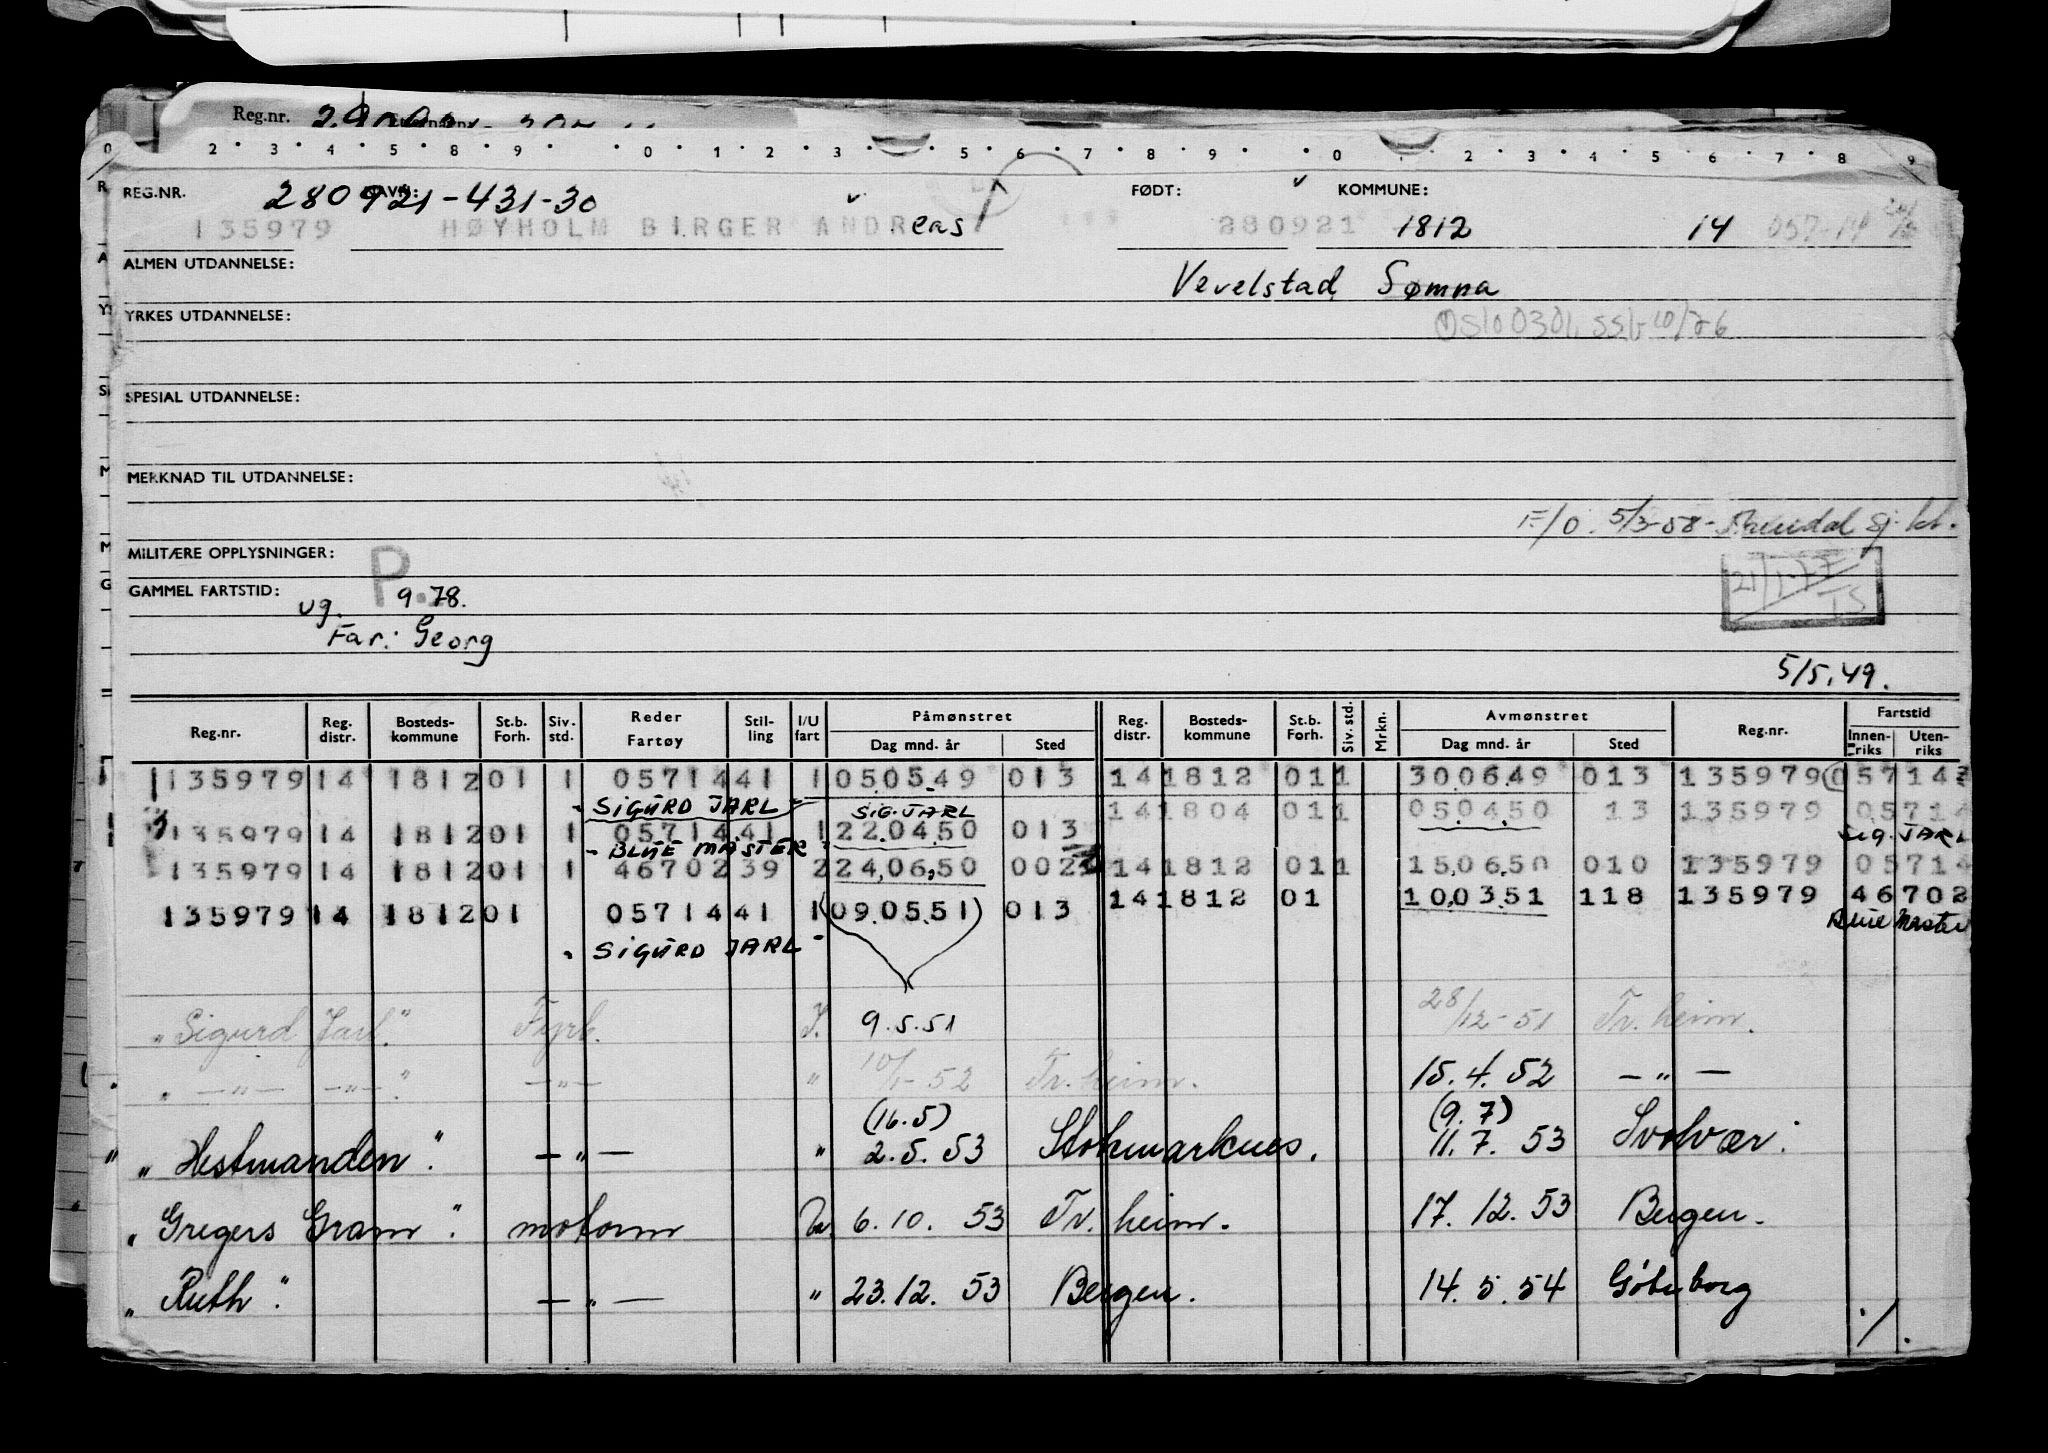 Reg.nr.
0 2 3 4 5 8 9 0 1 2 3 5 6 7 8 9 0 2 3 4 5 6 7 8 9
REG.NR. 280921-431-30 FØDT: KOMMUNE:
135979 HØYHOLM BIRGER ANDReas 280921 1812 14 057-14
ALMEN UTDANNELSE: Vevelstad, Sømna
YRKES UTDANNELSE: Oslo 0301, ssb 10/76
SPESIAL UTDANNELSE:
MERKNAD TIL UTDANNELSE:
F/O. 5/3-58
MILITÆRE OPPLYSNINGER: P
GAMMEL FARTSTID: ug. 9.78.
Far: Georg
5/5.49.
Reg.nr. Reg. distr. Bosteds-kommune St.b. Forh. Siv. std. Reder Fartøy Stil-ling I/U fart Påmønstret Dag mnd. år Sted Reg. distr. Bosteds-kommune St.b. Forh. Siv. std. Mrkn. Avmønstret Dag mnd. år Sted Reg.nr. Fartstid Innen-riks Uten-riks
135979 14 1812 01 1 05714 41 1 050549 013 14 1812 01 1 300649 013 135979 05714
- SIGURD JARL - SIG. JARL 14 1804 01 1 050450 13 135979 05714
135979 14 1812 01 1 05714 41 1 220450 013 Sig. JARL
- BLUE MASTER -
135979 14 1812 01 1 46702 39 2 240650 002 14 1812 01 1 150650 010 135979 05714
135979 14 1812 01 05714 41 1 (090551) 013 14 1812 01 100351 118 135979 46702
Blue Master
" SIGURD JARL "
"Sigurd Jarl." Fyrb. I. 9.5.51 28/12-51 Tr.heim.
" — " — — " — " — " — " 10/1-52 Tr.heim. 15.4.52 — " —
(16.5) (9.7)
"Hestmanden". — " — " 2.5.53 Stokmarknes. 11.7.53 Svolvær.
"Gregers Gram". motorm U. 6.10.53 Tr.heim. 17.12.53 Bergen.
"Ruth". — " — " 23.12.53 Bergen. 14.5.54 Göteborg
./.